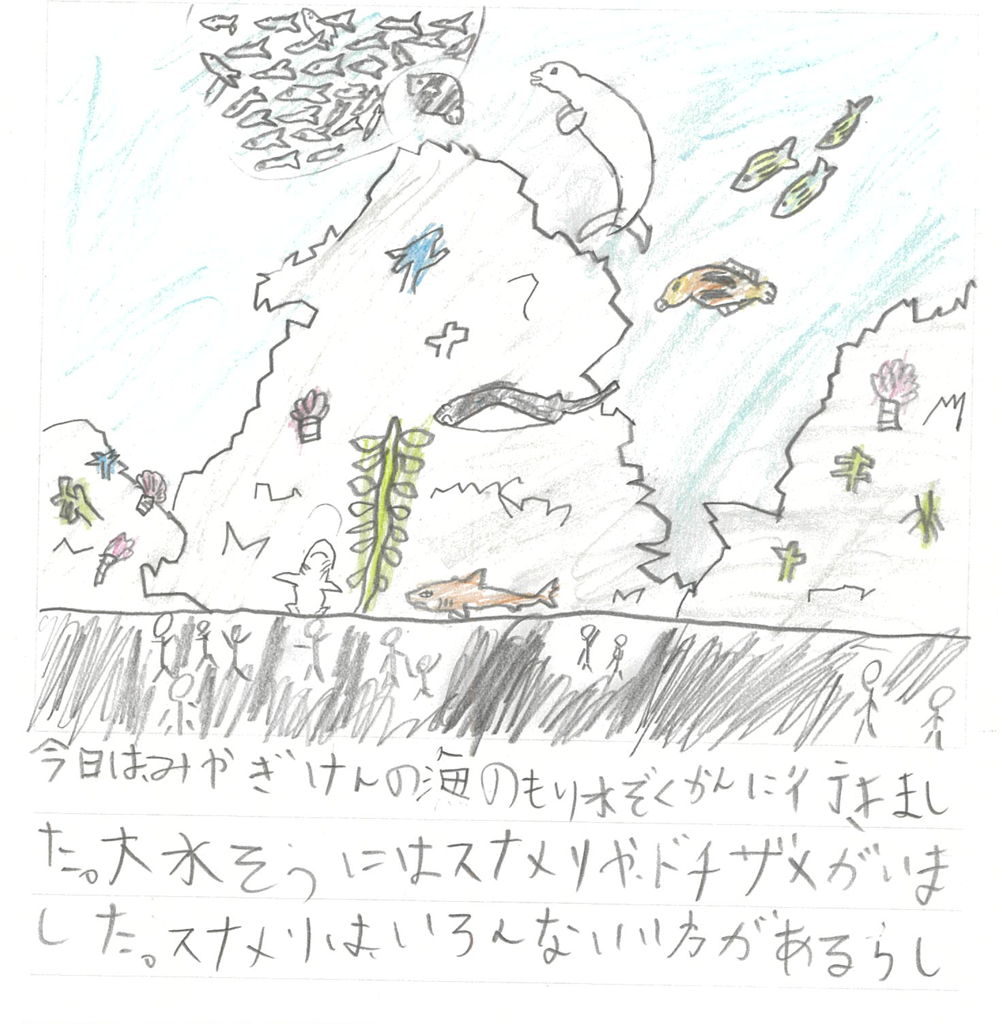 今日は、みやぎけんの海のもり水ぞくかんに行きまし
た。大水そうにはスナメリや、ドチザメがいま
した。スナメリは、いろんないい方があるらし